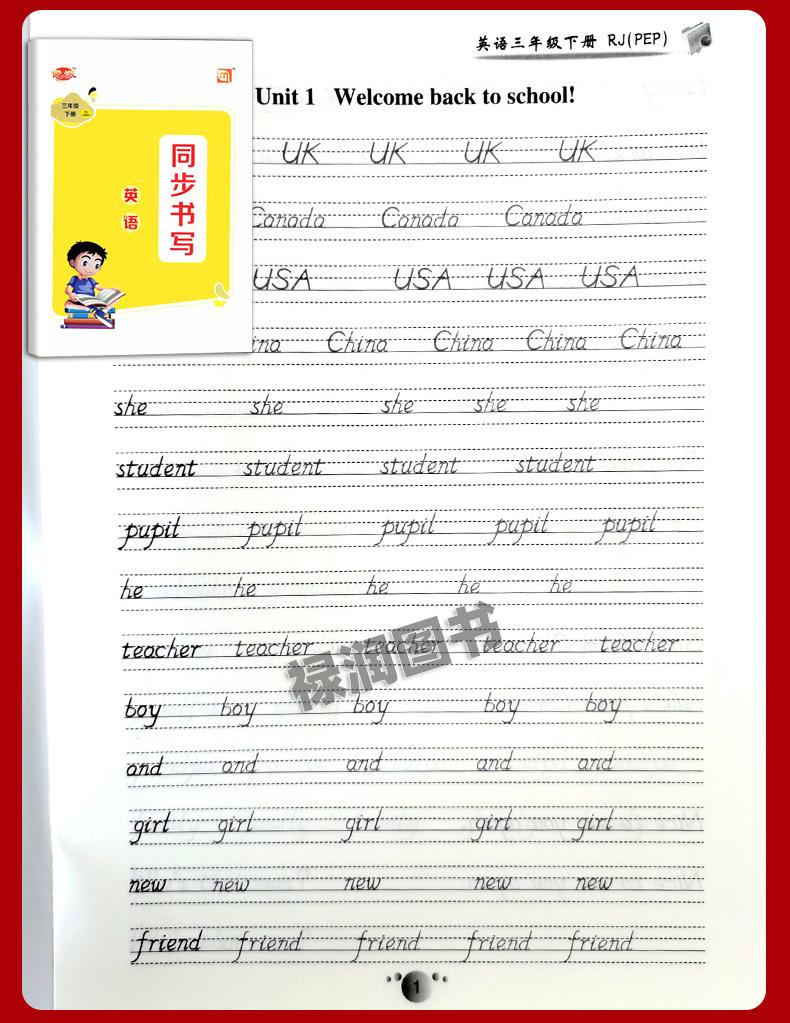 英语三年级下册 RJ(PEP)
三年级
下册
同步书写
英语
Unit 1 Welcome back to school!
UK UK UK UK
Canada Canada Canada
USA USA USA USA
ina China China China China
she she she she she
student student student student
pupil pupil pupil pupil pupil
he he he he he
teacher teacher teacher teacher teacher
boy boy boy boy boy
and and and and and
girl girl girl girl girl
new new new new new
friend friend friend friend friend
禄润图书
1